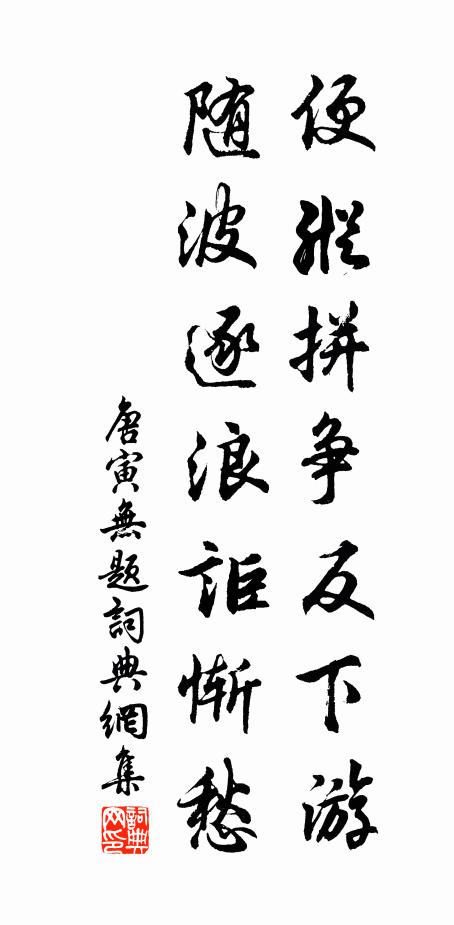 便纵拼争反下游
随波逐浪讵惭愁
唐寅無题詞典網集
詞典网印